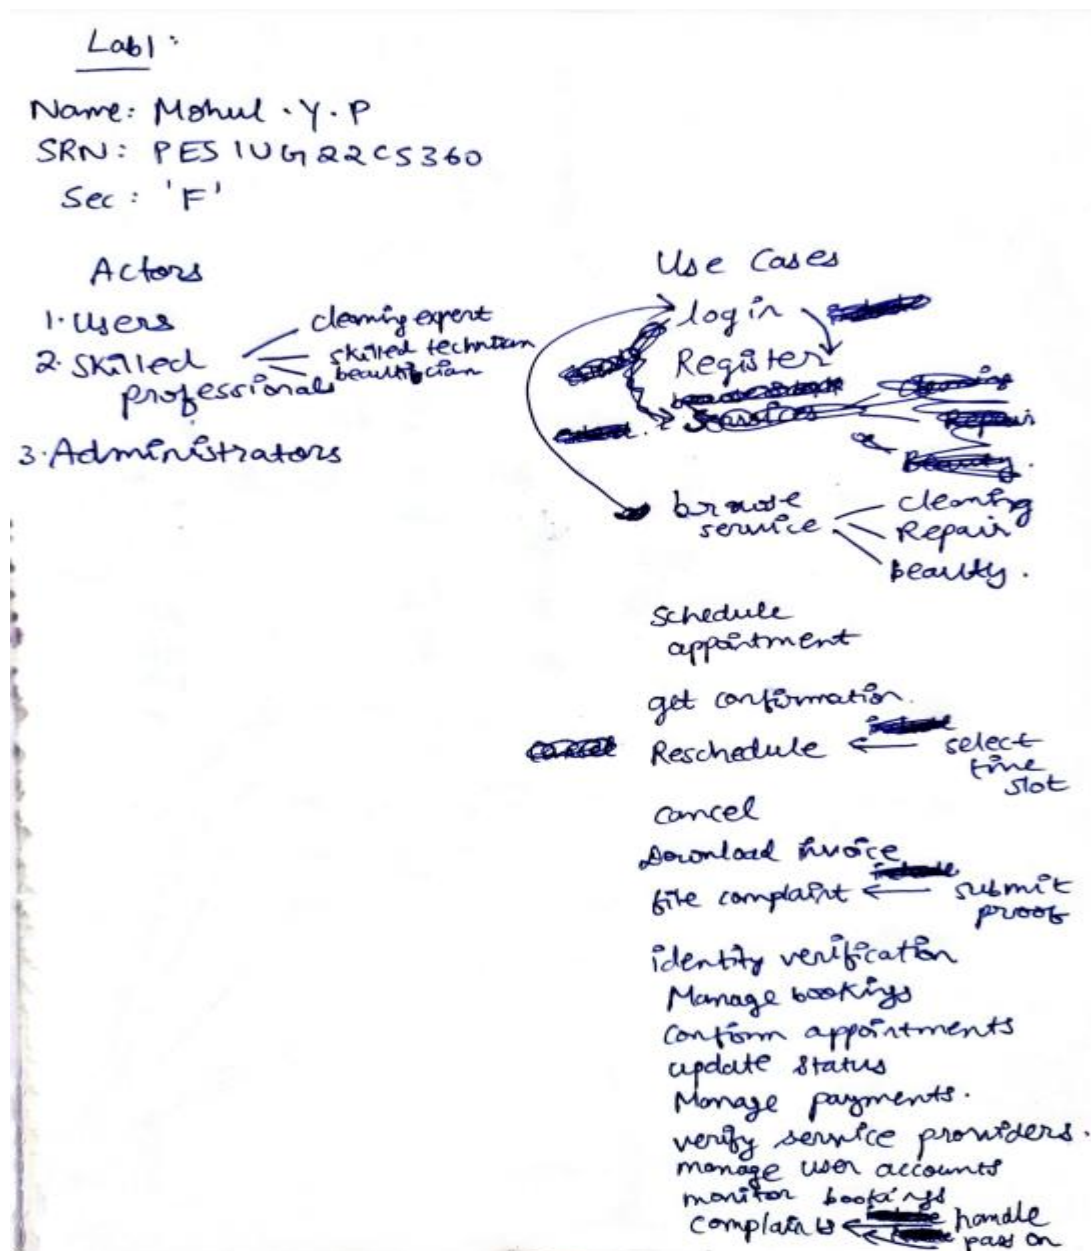 Lab1:
Name: Mohul.Y.P
SRN: PES1UG22CS360
Sec: 'F'
Actors
1. Users
2. Skilled professionals
cleaning expert
skilled technician
beautician
3. Administrators
Use Cases
login
Register
Services
Cleaning
Repair
Beauty.
browse
service
cleaning
Repair
beauty.
Schedule
appointment
get confirmation.
cancel
Reschedule
select
time
slot
cancel
Download invoice
file complaint
submit
proof
identity verification
Manage bookings
Confirm appointments
update status
Manage payments.
verify service providers.
manage user accounts
monitor bookings
complaints
handle
pass on